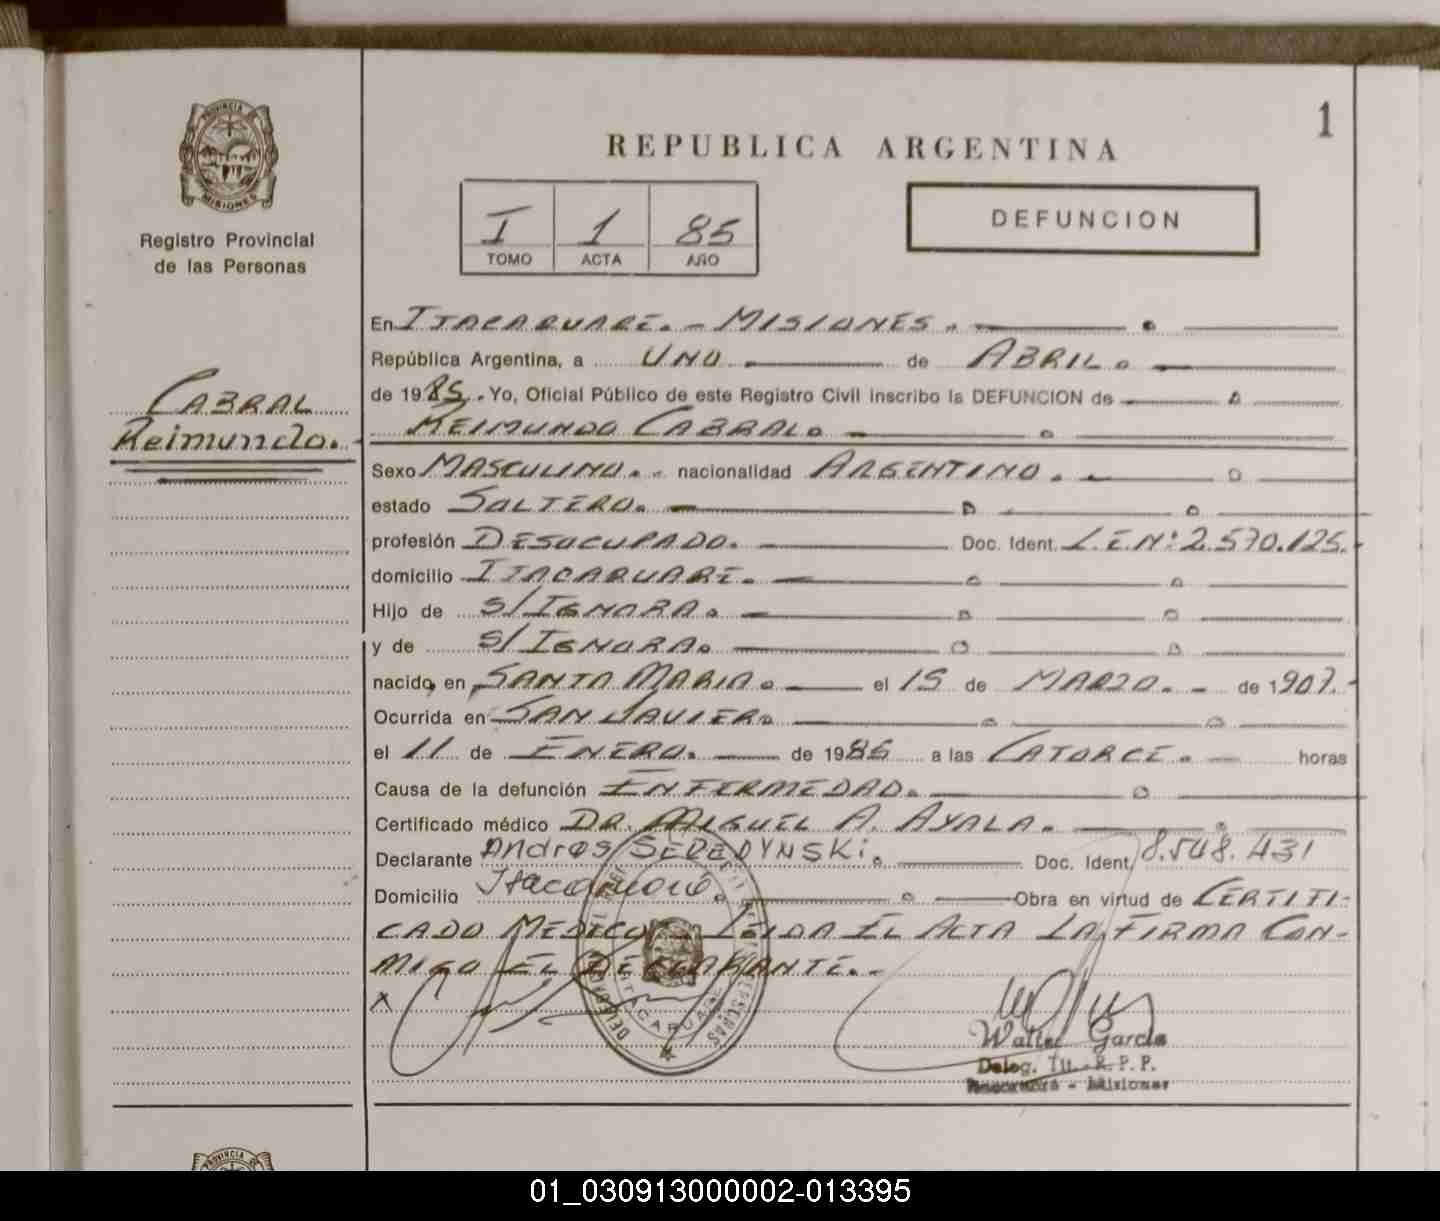 1
PROVINCIA DE
MISIONES
Registro Provincial
de las Personas
CABRAL
Reimundo.
REPUBLICA ARGENTINA
I 1 85
TOMO ACTA AÑO
DEFUNCION
En ITACARUARE. - MISIONES.
República Argentina, a UNO de ABRIL.
de 1985. Yo, Oficial Público de este Registro Civil inscribo la DEFUNCION de
REIMUNDO CABRAL.
Sexo MASCULINO. nacionalidad ARGENTINO.
estado SOLTERO.
profesión DESOCUPADO. Doc. Ident. L.E.Nº: 2.570.125.-
domicilio ITACARUARE.
Hijo de S/IGNORA.
y de S/IGNORA.
nacido, en SANTA MARIA. el 15 de MARZO. - de 1907.-
Ocurrida en SAN JAVIER.
el 11 de ENERO. de 1985 a las CATORCE. horas
Causa de la defunción ENFERMEDAD.
Certificado médico DR. MIGUEL A. AYALA.
Declarante Andres SEREDYNSKi. Doc. Ident. 8.548.431
Domicilio Itacaruaré. Obra en virtud de CERTIFI-
CADO MEDICO. LEIDA EL ACTA LA FIRMA CON-
MIGO EL DECLARANTE.-
X
ITACARUARE
Walter García
Deleg. Tit. R.P.P.
Itacaruaré - Misiones
PROVINCIA DE
01_030913000002-013395